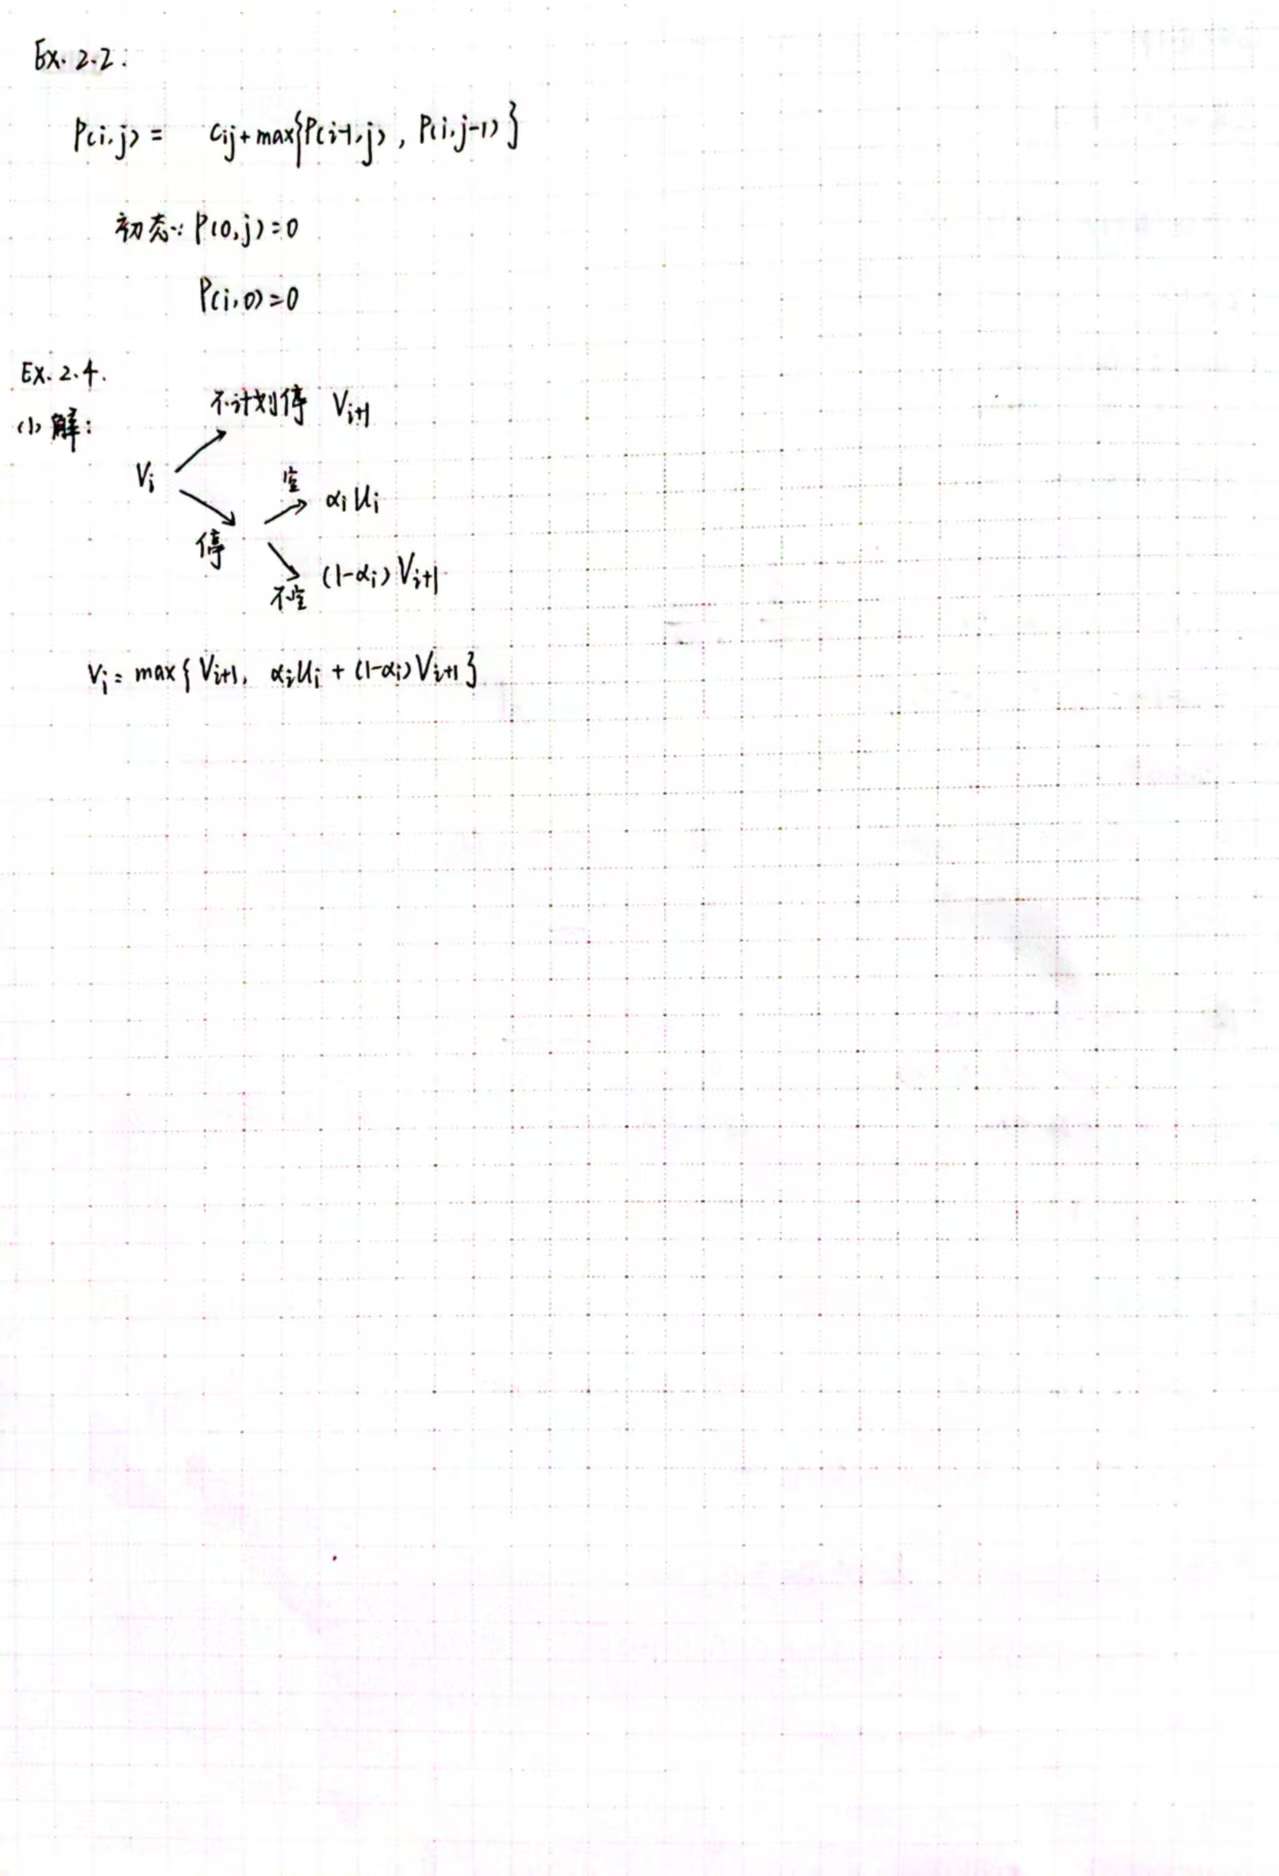 Ex. 2.2:
P(i,j) = cij + max{P(i-1,j), P(i,j-1)}
初态: P(0,j)=0
P(i,0)=0
Ex. 2.4.
(1) 解:
不计划停 Vi+1
Vi
空 αiui
停
不空 (1-αi)Vi+1
Vi = max{Vi+1, αiui + (1-αi)Vi+1}